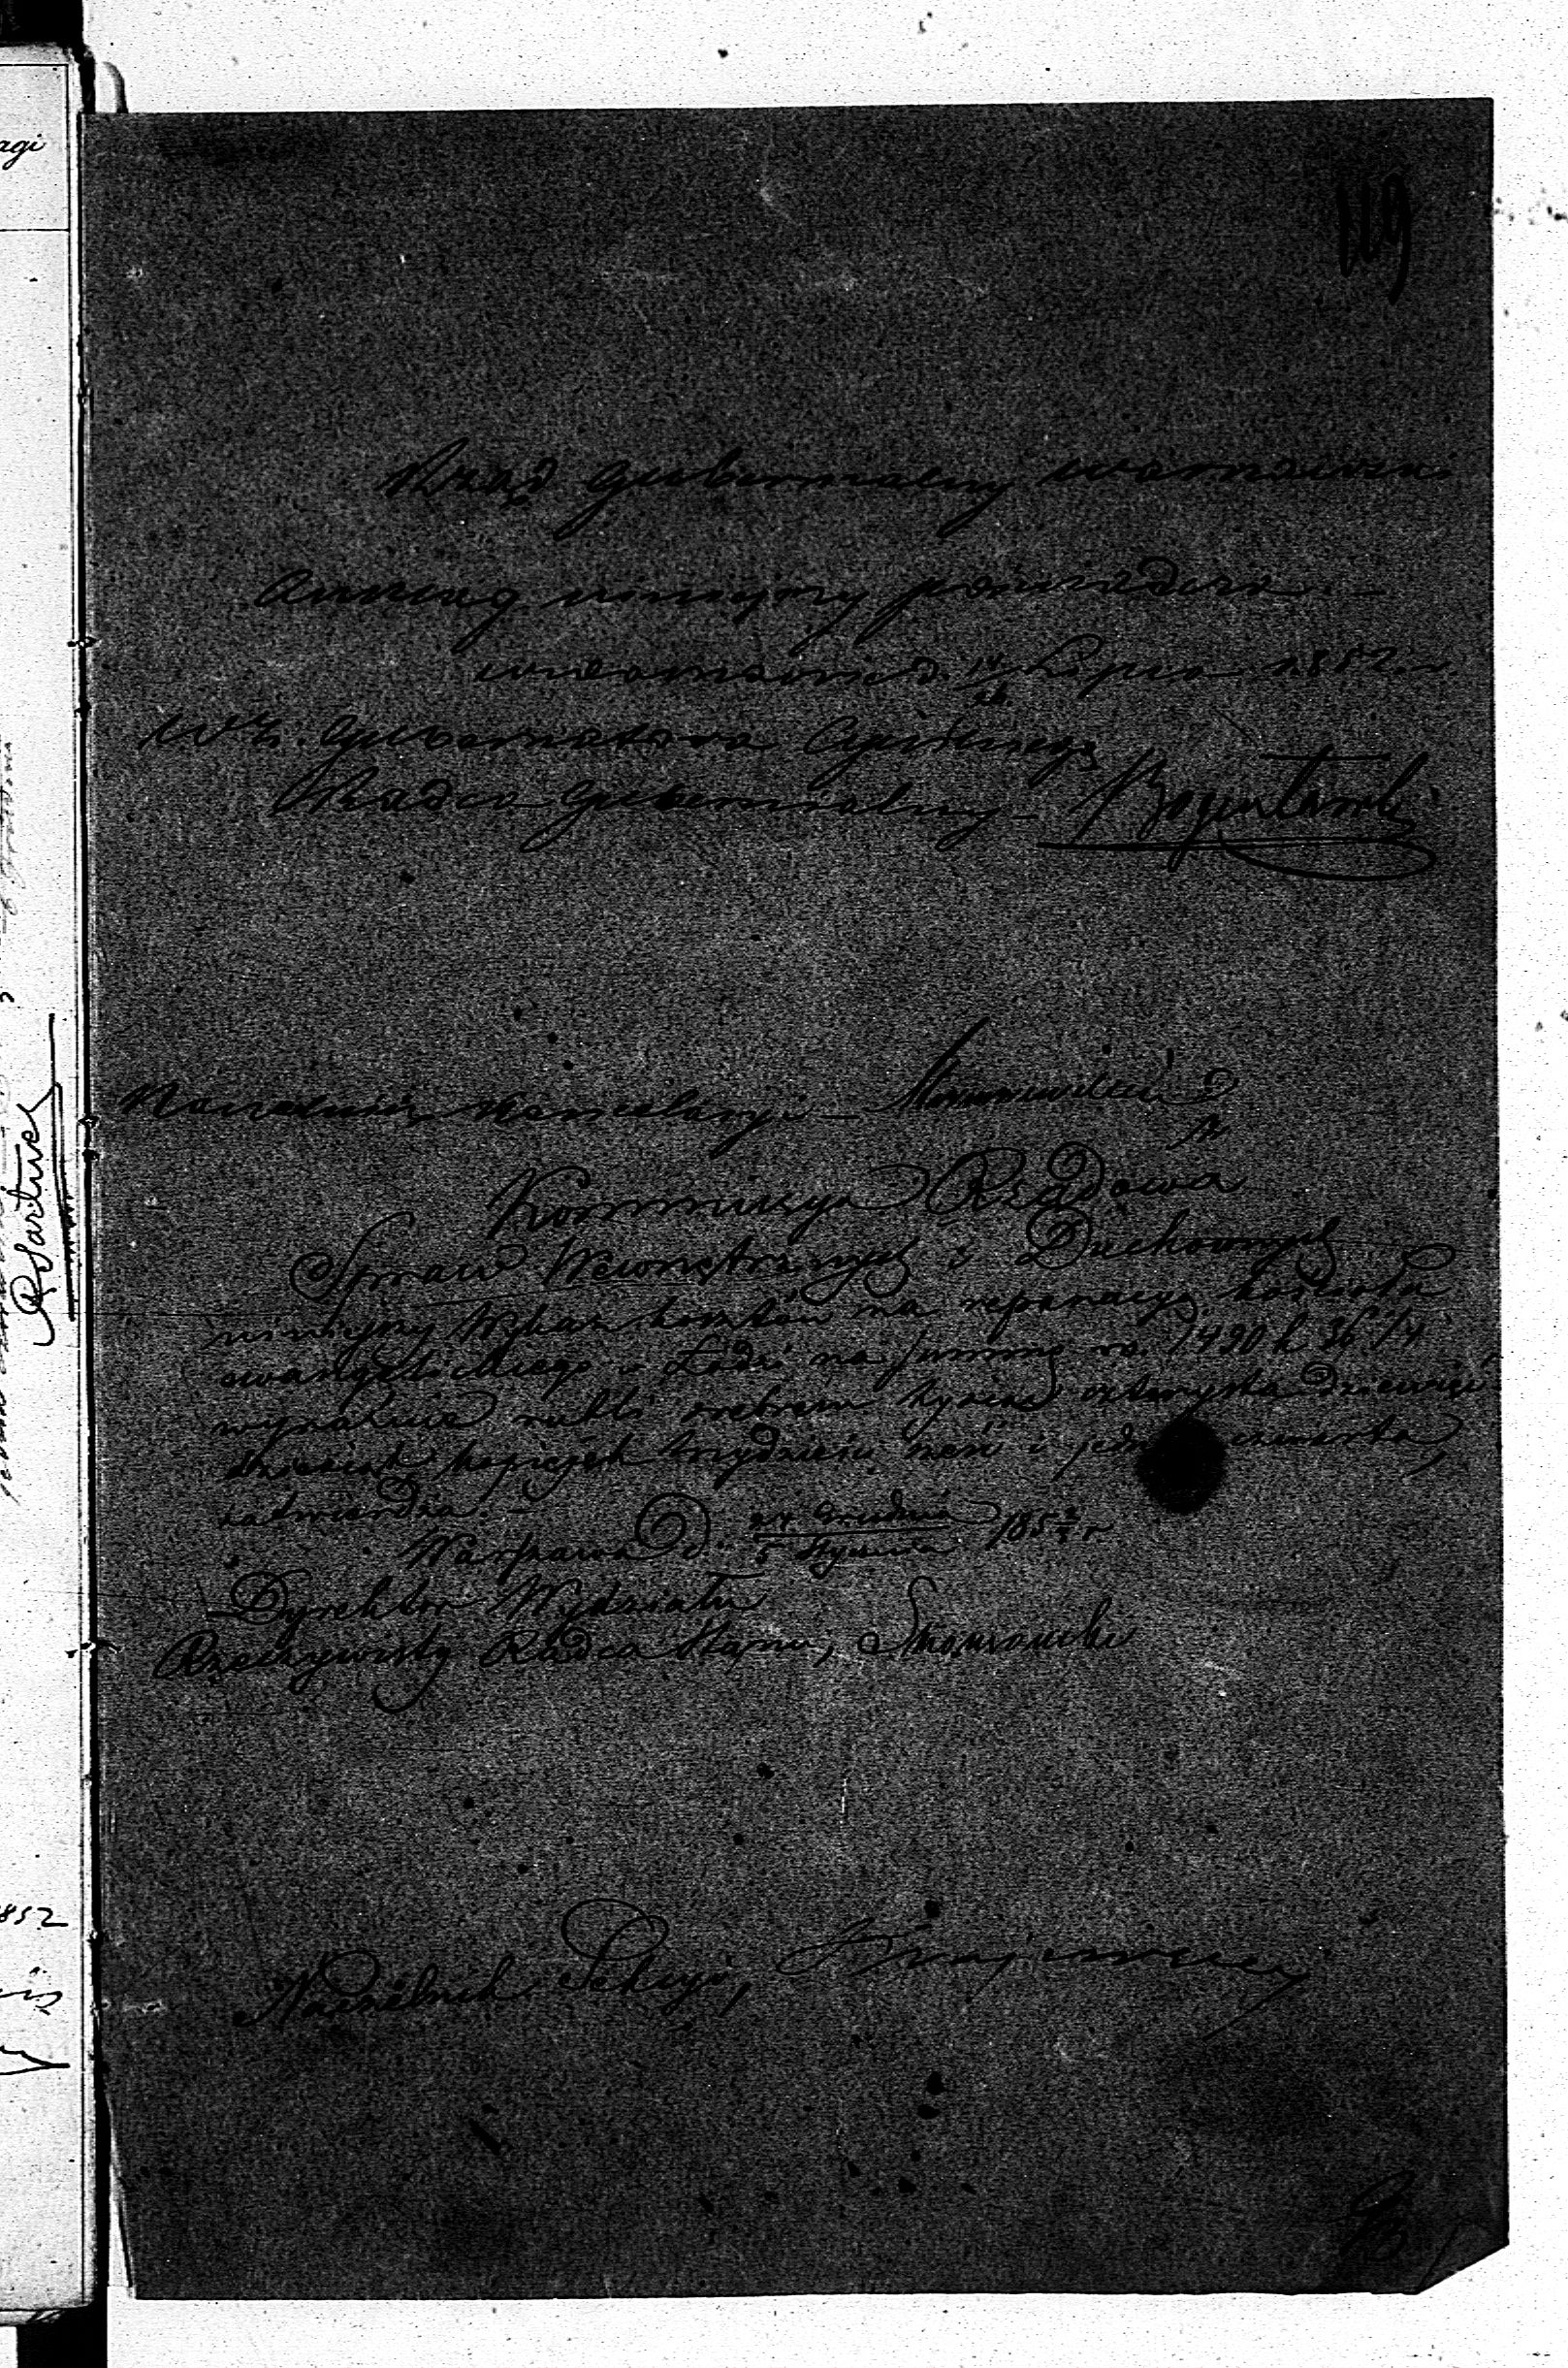 119
Rząd Gubernialny Warszawski
Anszlag niniejszy poświadcza. —
w Warszawie d. 14/26 Lipca 1852 r.
w z. Gubernatora Cywilnego
Radca Gubernialny —
Naczelnik Kancelaryi —
Kommissya Rządowa
Spraw Wewnętrznych i Duchownych
niniejszy Wykaz kosztów na reparacyę kościoła
ewangelickiego w Łodzi na summę rs. 1490 k 36 1/4
wyraźnie rubli srebrem tysiąc czterysta dziewięć
dziesiąt kopiejek trzydzieści sześć i jedna czwarta,
zatwierdza. —
Warszawa d. 24 Grudnia / 5 Stycznia 185 2/3 r
Dyrektor Wydziału
Rzeczywisty Radca Stanu,
Naczelnik Sekcyi,
agi
852